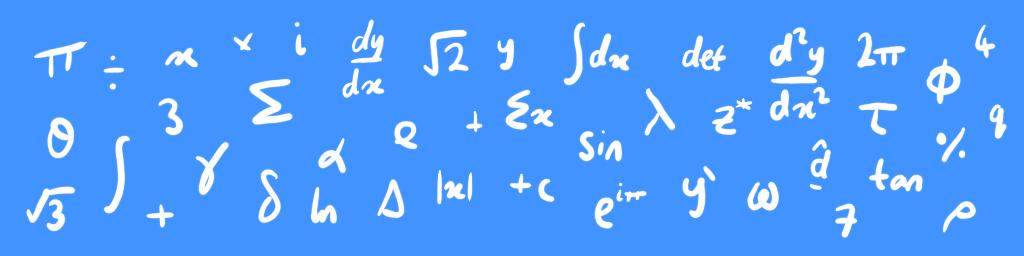 π ÷ x × i dy/dx √2 y ∫dx det d²y/dx² 2π ϕ 4
θ 3 Σ α e + Σx sin λ z* τ % q
√3 ∫ + γ δ ln Δ |x| +c e^iπ y' ω d̂ 7 tan ρ